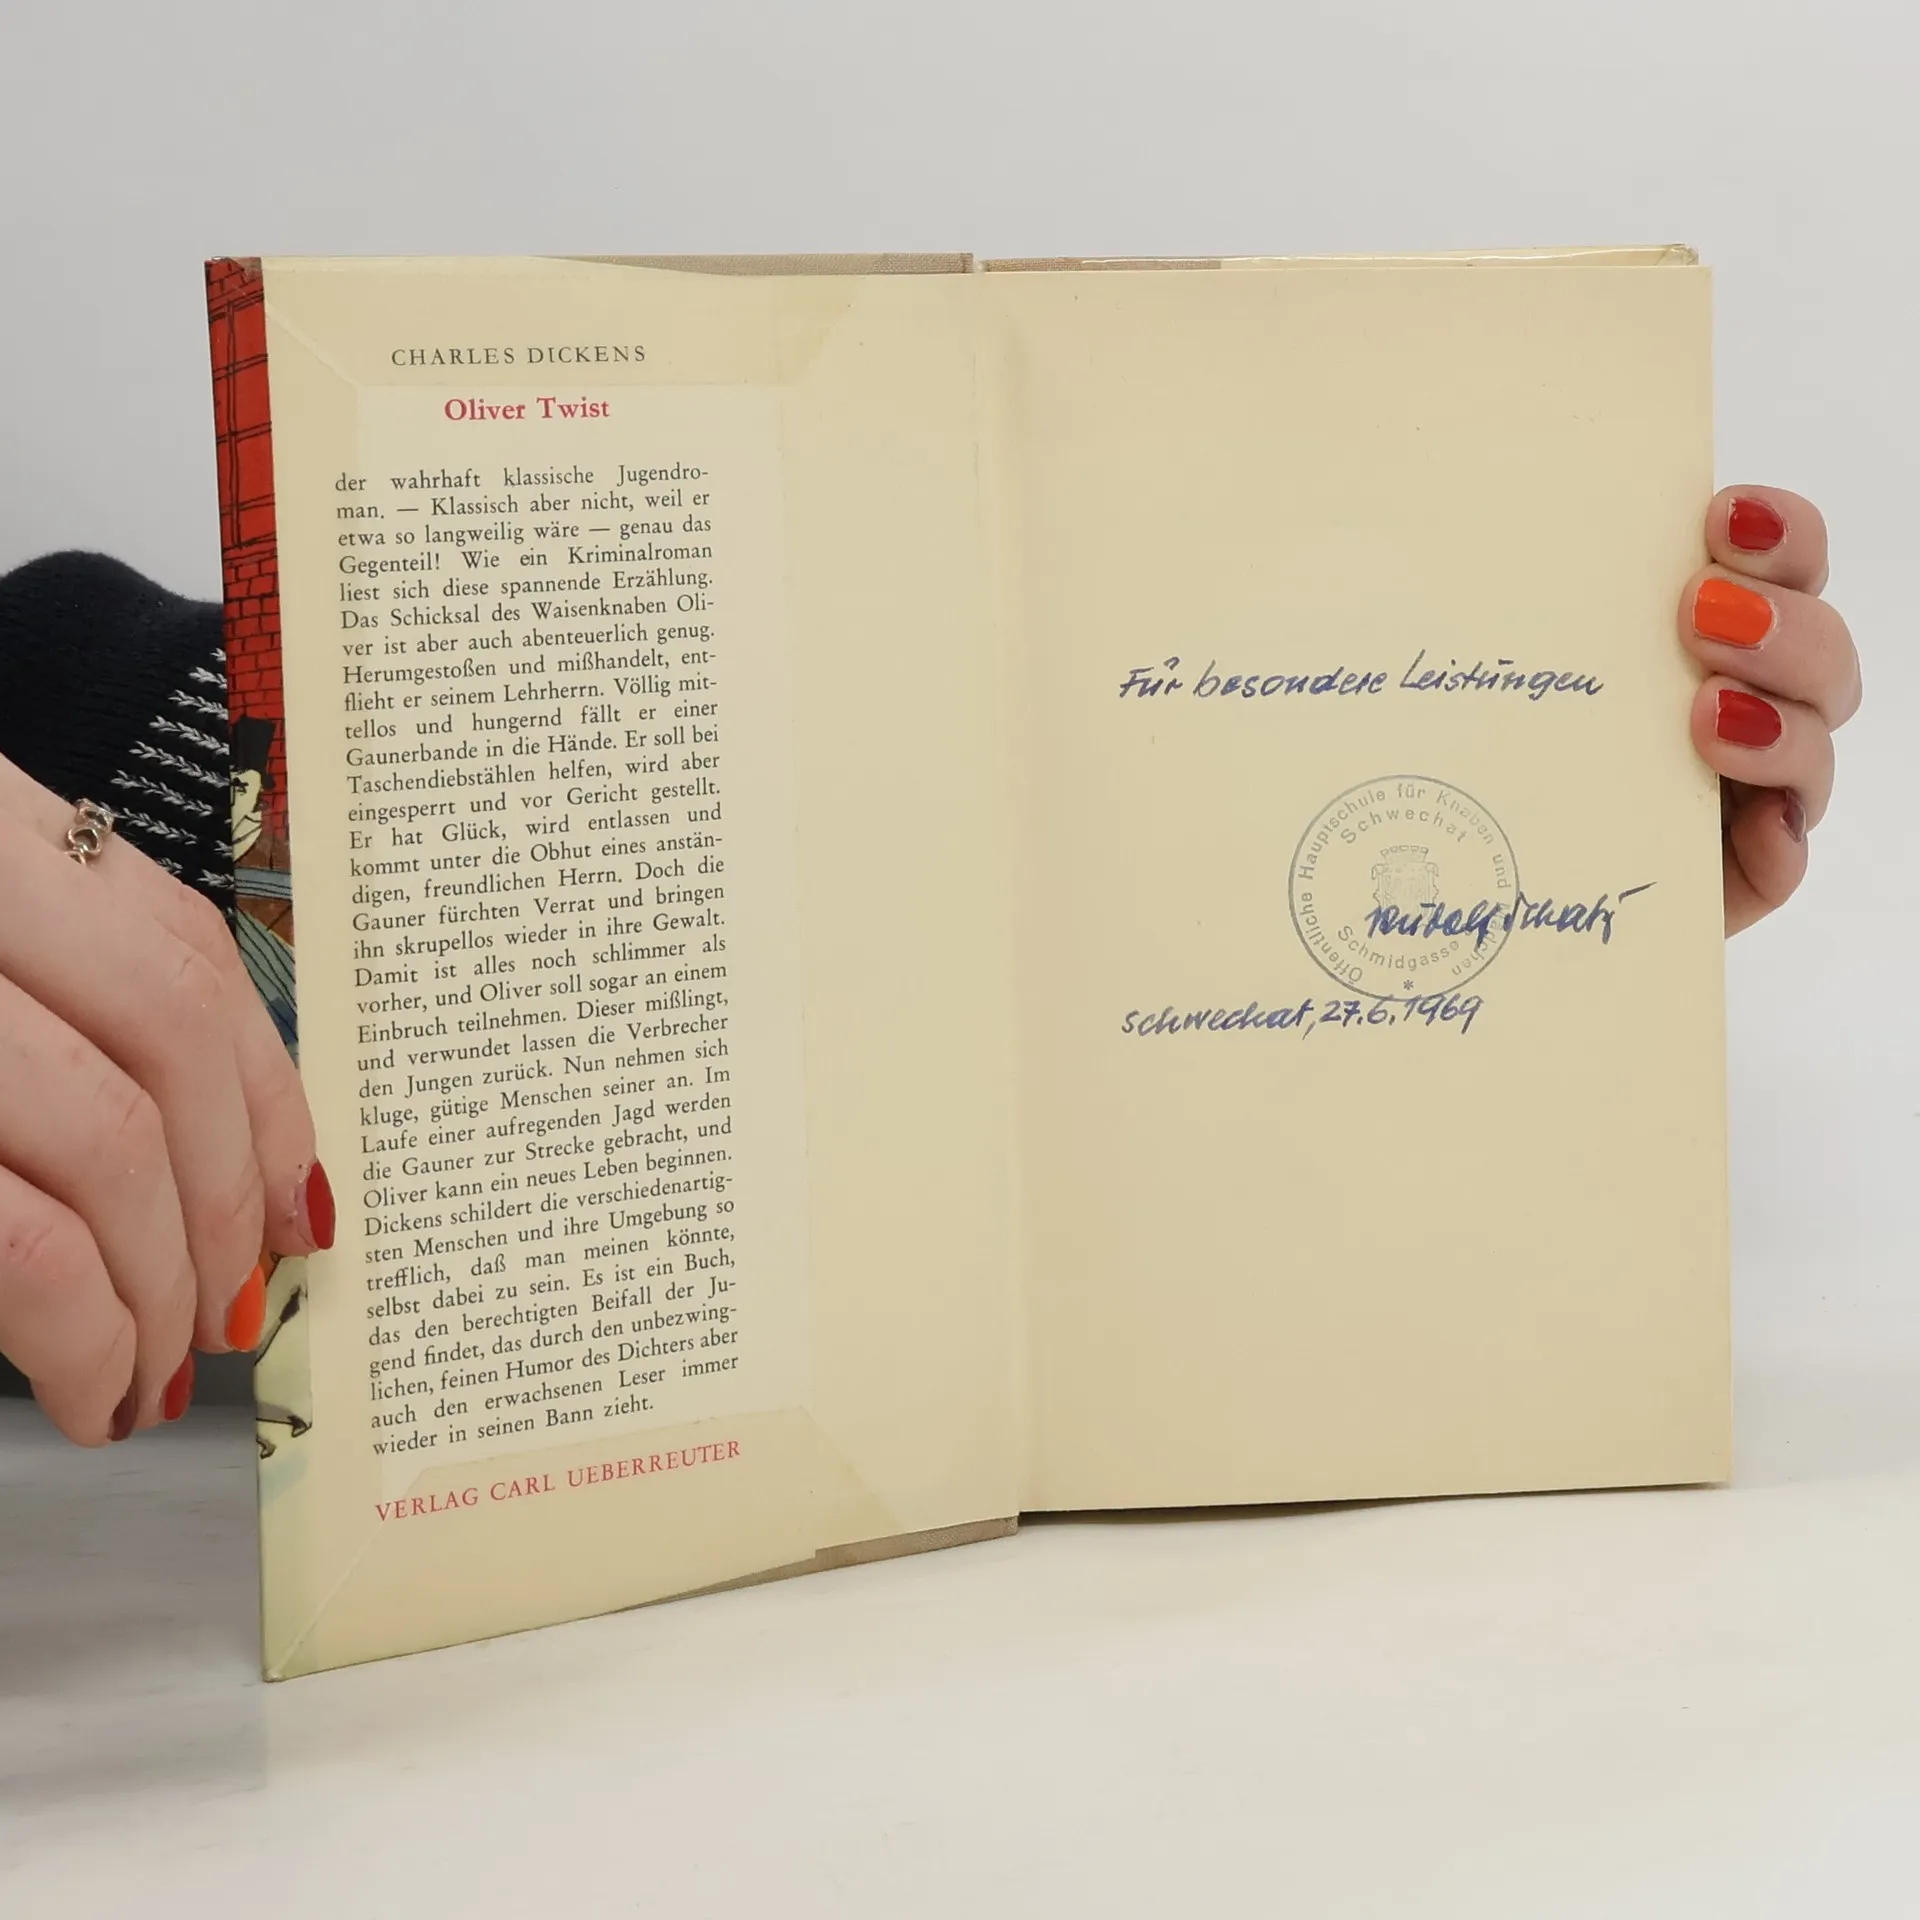 CHARLES DICKENS
Oliver Twist
der wahrhaft klassische Jugendro-
man. — Klassisch aber nicht, weil er
etwa so langweilig wäre — genau das
Gegenteil! Wie ein Kriminalroman
liest sich diese spannende Erzählung.
Das Schicksal des Waisenknaben Oli-
ver ist aber auch abenteuerlich genug.
Herumgestoßen und mißhandelt, ent-
flieht er seinem Lehrherrn. Völlig mit-
tellos und hungernd fällt er einer
Gaunerbande in die Hände. Er soll bei
Taschendiebstählen helfen, wird aber
eingesperrt und vor Gericht gestellt.
Er hat Glück, wird entlassen und
kommt unter die Obhut eines anstän-
digen, freundlichen Herrn. Doch die
Gauner fürchten Verrat und bringen
ihn skrupellos wieder in ihre Gewalt.
Damit ist alles noch schlimmer als
vorher, und Oliver soll sogar an einem
Einbruch teilnehmen. Dieser mißlingt,
und verwundet lassen die Verbrecher
den Jungen zurück. Nun nehmen sich
kluge, gütige Menschen seiner an. Im
Laufe einer aufregenden Jagd werden
die Gauner zur Strecke gebracht, und
Oliver kann ein neues Leben beginnen.
Dickens schildert die verschiedenartig-
sten Menschen und ihre Umgebung so
trefflich, daß man meinen könnte,
selbst dabei zu sein. Es ist ein Buch,
das den berechtigten Beifall der Ju-
gend findet, das durch den unbezwing-
lichen, feinen Humor des Dichters aber
auch den erwachsenen Leser immer
wieder in seinen Bann zieht.
VERLAG CARL UEBERREUTER
Für besondere Leistungen
Öffentliche Hauptschule für Knaben und Mädchen
Schwechat
Schmidgasse
Rudolf
Schwechat, 27.6.1969